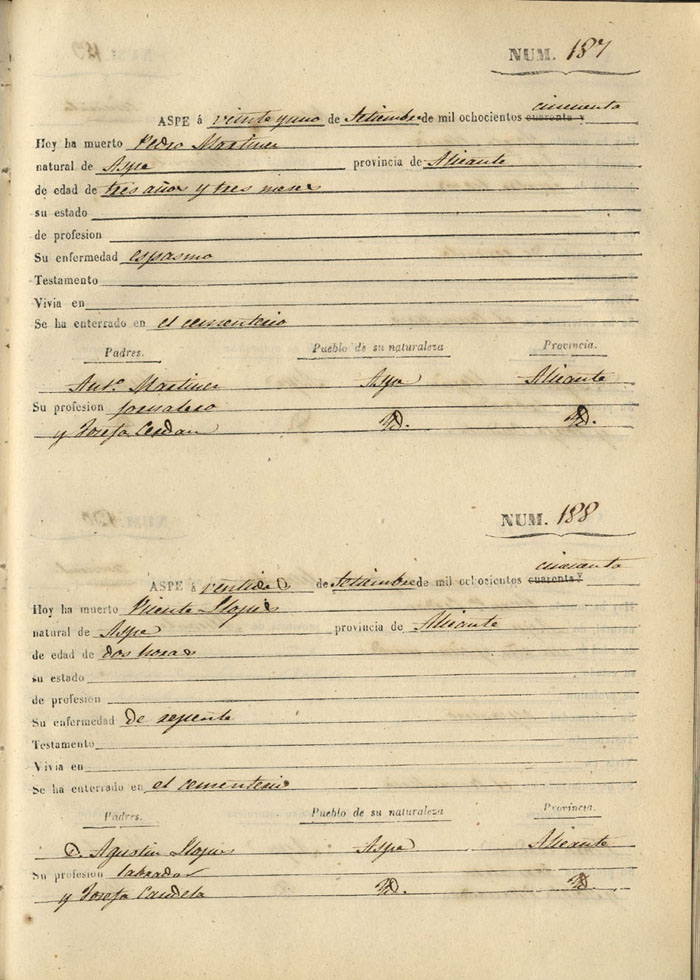 NUM. 187
ASPE á veinte y uno de Setiembre de mil ochocientos cuarenta y cincuenta
Hoy ha muerto Pedro Martinez
natural de Aspe provincia de Alicante
de edad de tres años y tres meses
su estado
de profesion
Su enfermedad espasmo
Testamento
Vivia en
Se ha enterrado en el cementerio
Padres. Pueblo de su naturaleza Provincia.
Antº Martinez Aspe Alicante
Su profesion jornalero
y Josefa Cerdan Yd. Yd.
NUM. 188
ASPE á de Setiembre de mil ochocientos cuarenta y cincuenta
Hoy ha muerto Vicente
natural de Aspe provincia de Alicante
de edad de dos horas
su estado
de profesion
Su enfermedad de repente
Testamento
Vivia en
Se ha enterrado en el cementerio
Padres. Pueblo de su naturaleza Provincia.
D. Agustin Aspe Alicante
Su profesion labrador
y Josefa Candela Yd. Yd.